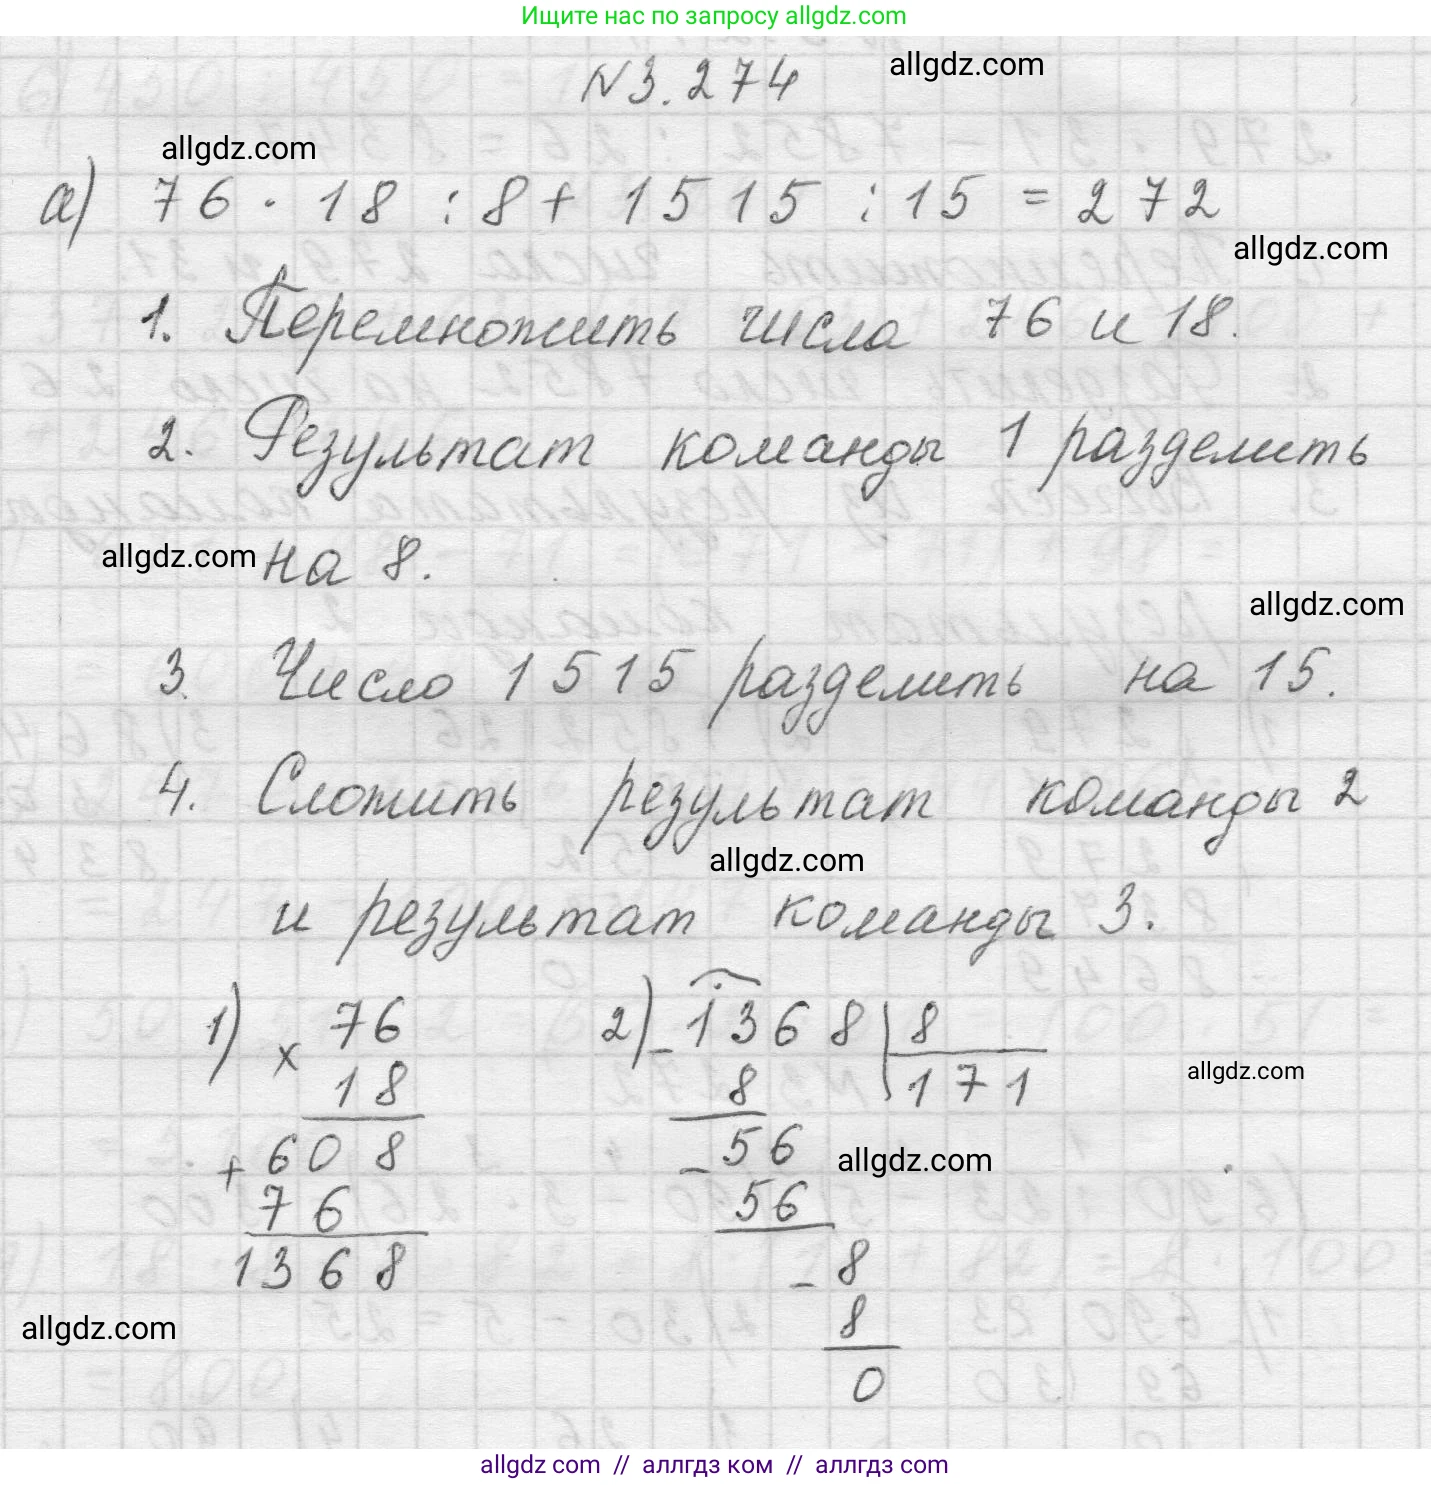 Ищите нас по запросу allgdz.com
N 3.274
allgdz.com
allgdz.com
а) 76 · 18 : 8 + 1515 : 15 = 272
allgdz.com
1. Перемножить числа 76 и 18.
2. Результат команды 1 разделить
allgdz.com
на 8.
allgdz.com
3. Число 1515 разделить на 15.
4. Сложить результат команды 2
allgdz.com
и результат команды 3.
1) 76
x
18
+ 608
76
1368
2) - 1368 | 8
8 171
- 56
56
- 8
8
0
allgdz.com
allgdz.com
allgdz.com
allgdz com // аллгдз ком // аллгдз com